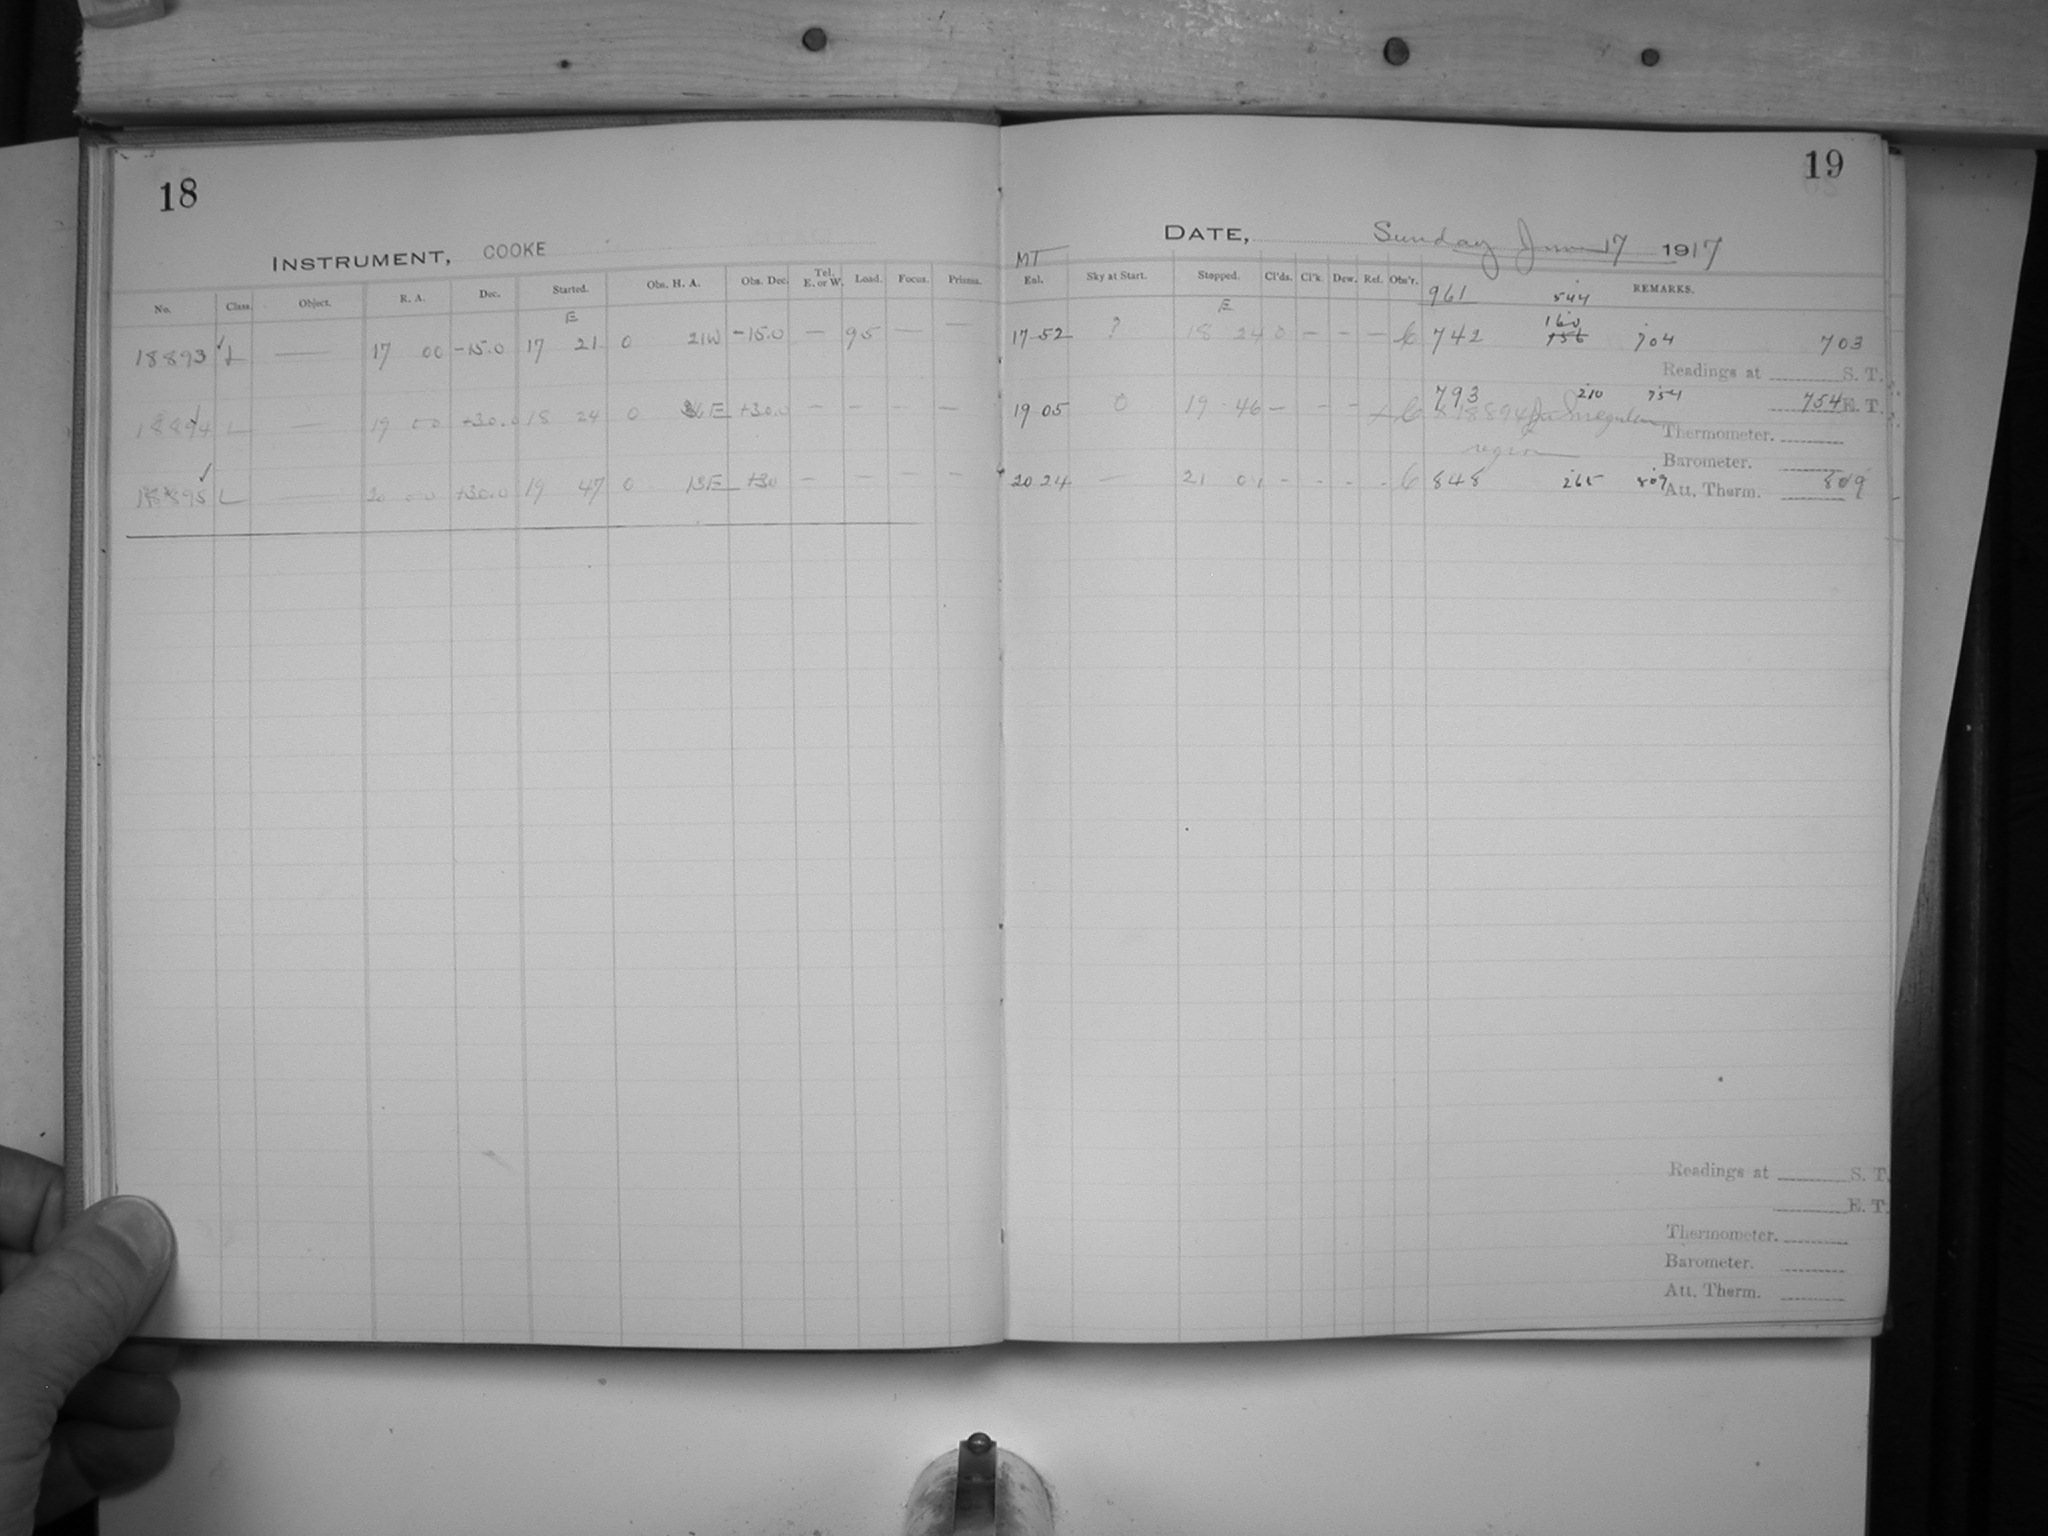 18
INSTRUMENT, COOKE
No. Class. Object. R. A. Dec. Started. Obs. H. A. Obs. Dec. Tel. E. or W. Load. Focus. Prisms.
E
18893 L — 17 00 -15.0 17 21 0 21W -15.0 — 95 — —
18894 L — 19 00 +30.0 18 24 0 36E +30.0 — — — —
18895 L 20 00 +30.0 19 47 0 13E +30 — — — —
19
DATE, Sunday June 17 1917
MT
Enl. Sky at Start. Stopped. Cl'ds. Cl'k. Dew. Ref. Obs'r. REMARKS.
961 544
E
17 52 ? 18 24 0 — — — 6 742 160 156 704 703
Readings at S. T.
19 05 0 19 46 — — — 6 793 210 754 754 E. T.
18894 Irregular
region
Thermometer.
Barometer.
20 24 — 21 04 - - - - 6 848 265 809 809
Att. Therm.
Readings at S. T.
E. T.
Thermometer.
Barometer.
Att. Therm.